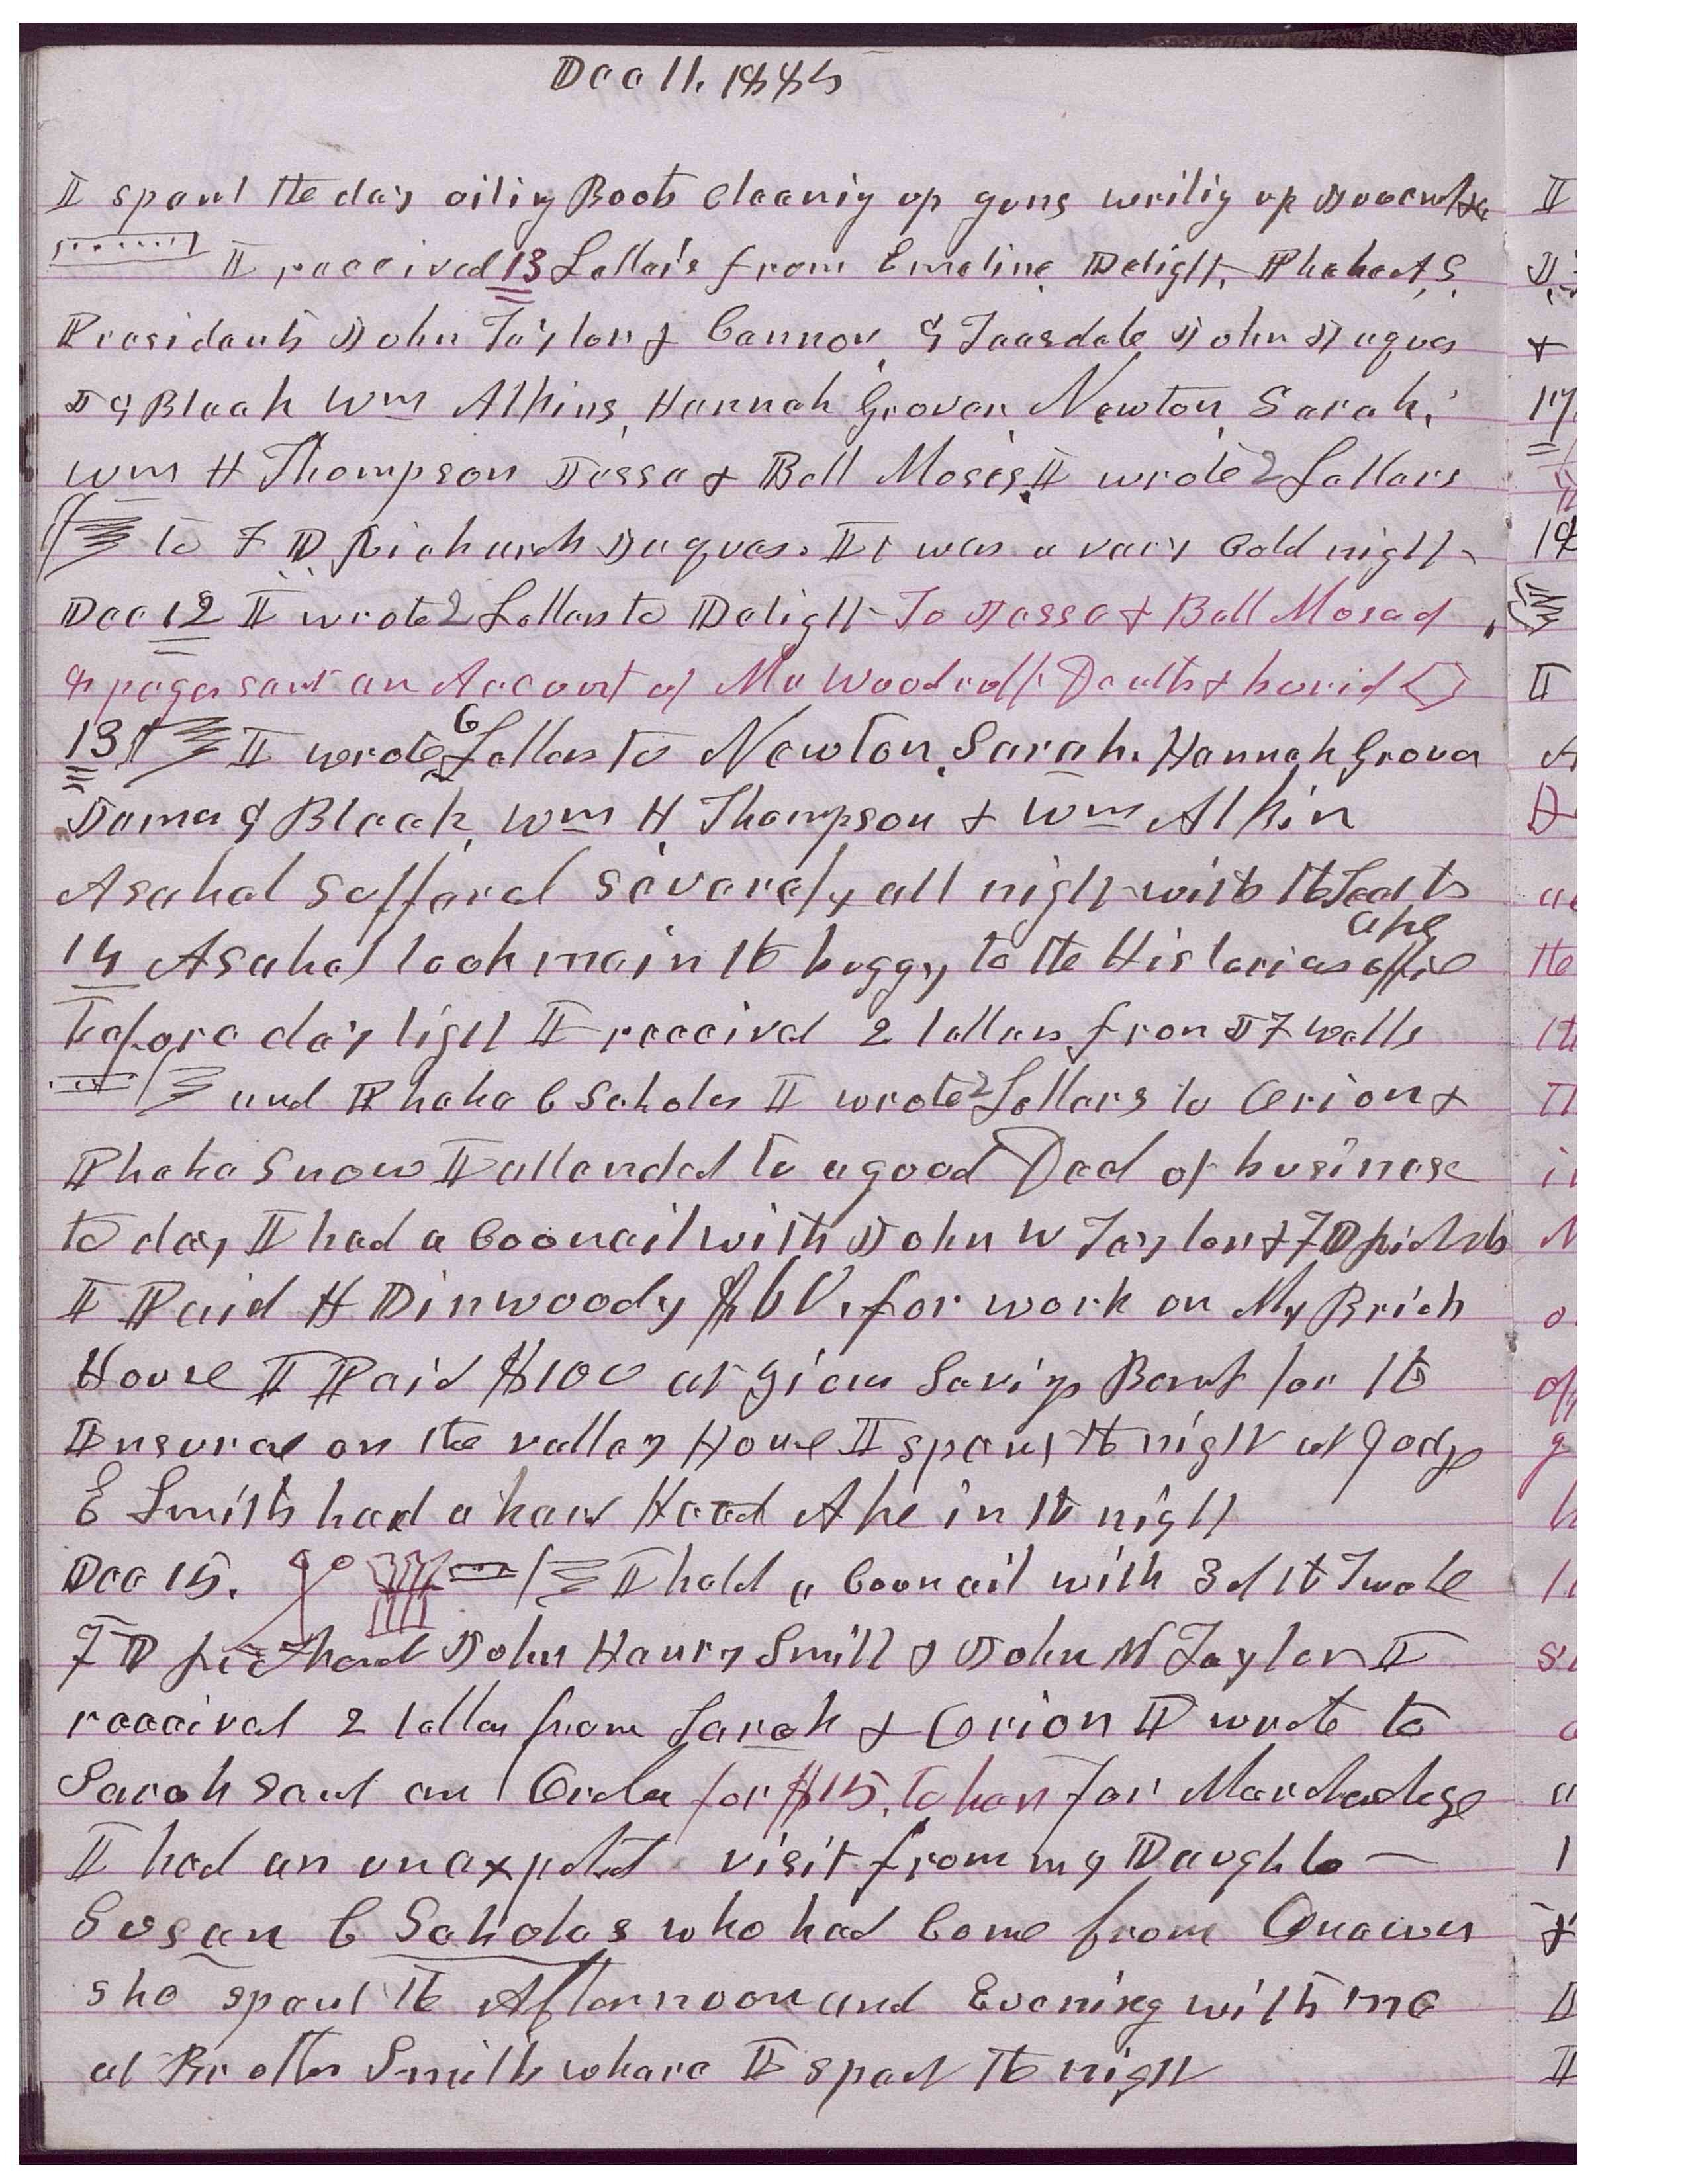 Dec 11, 1885
I spent the day oiling Boots cleaning up guns writing up
I received 13 Letters from Emeline, Delight, Phebe A, S,
Presidents John Taylor & Cannon, G Teasdale John Jaques
J G Bleak Wm Atkins, Hannah Grover, Newton, Sarah,
Wm H Thompson Jesse & Bell Moses, I wrote 2 Letters
to F D Richards Jaques. It was a very Cold night
Dec 12 I wrote 2 Letters to Delight To Jesse & Bell Moses
pages sent an Account of Mc Woodruff Death & buriel
13 I wrote 6 Letters to Newton, Sarah. Hannah Grover
James G Bleak, Wm H Thompson & Wm Atkin
Asahel Sufferd severely all night with the Teeth
ake
14 Asahel took me in the buggy to the Historians office
before day light I receivd 2 letters from J F Wells
and Phebe C Scholes I wrote 2 Letters to Orion &
Phebe Snow I attended to a good Deal of business
to day, I had a Councail with John W Taylor & F D Richards
I Paid H Dinwoody $60, for work on My Brick
House I Paid $100 at Savings Bank for the
Insurance on the valley House I spent the night at
E Smiths had a hard Head Ake in the night
Dec 15. I held a Councail with 3 of the Twelve
F D Richard John Henry Smith & John W Taylor I
receeived 2 letters from Sarah & Orion I wrote to
Sarah sent an Order for $15, to her for Merchadize
I had an unexpected visit from my Daughter
Susan C Scholes who had Come from
she spent the Afternoon and Evening with me
at Brother Smiths whare I spent the night